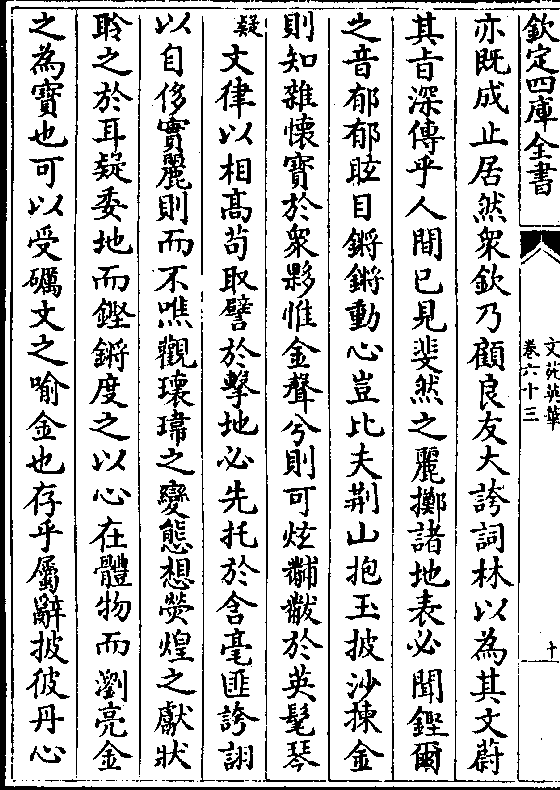 欽定四庫全書
文苑英華
卷六十三
十
亦既成止居然衆欽乃顧良友大誇詞林以為其文蔚
其旨深傳乎人間已見斐然之麗擲諸地表必聞鏗爾
之音郁郁眩目鏘鏘動心豈比夫荆山抱玉披沙揀金
則知雜懷寶於衆夥惟金聲兮則可炫黼黻於英髦琴
疑文律以相高苟取譬於擊地必先托於含毫匪誇詡
以自侈實麗則而不噍觀瓌瑋之變態想熒煌之獻狀
聆之於耳疑委地而鏗鏘度之以心在體物而瀏亮金
之為寶也可以受礪文之喻金也存乎屬辭披彼丹心